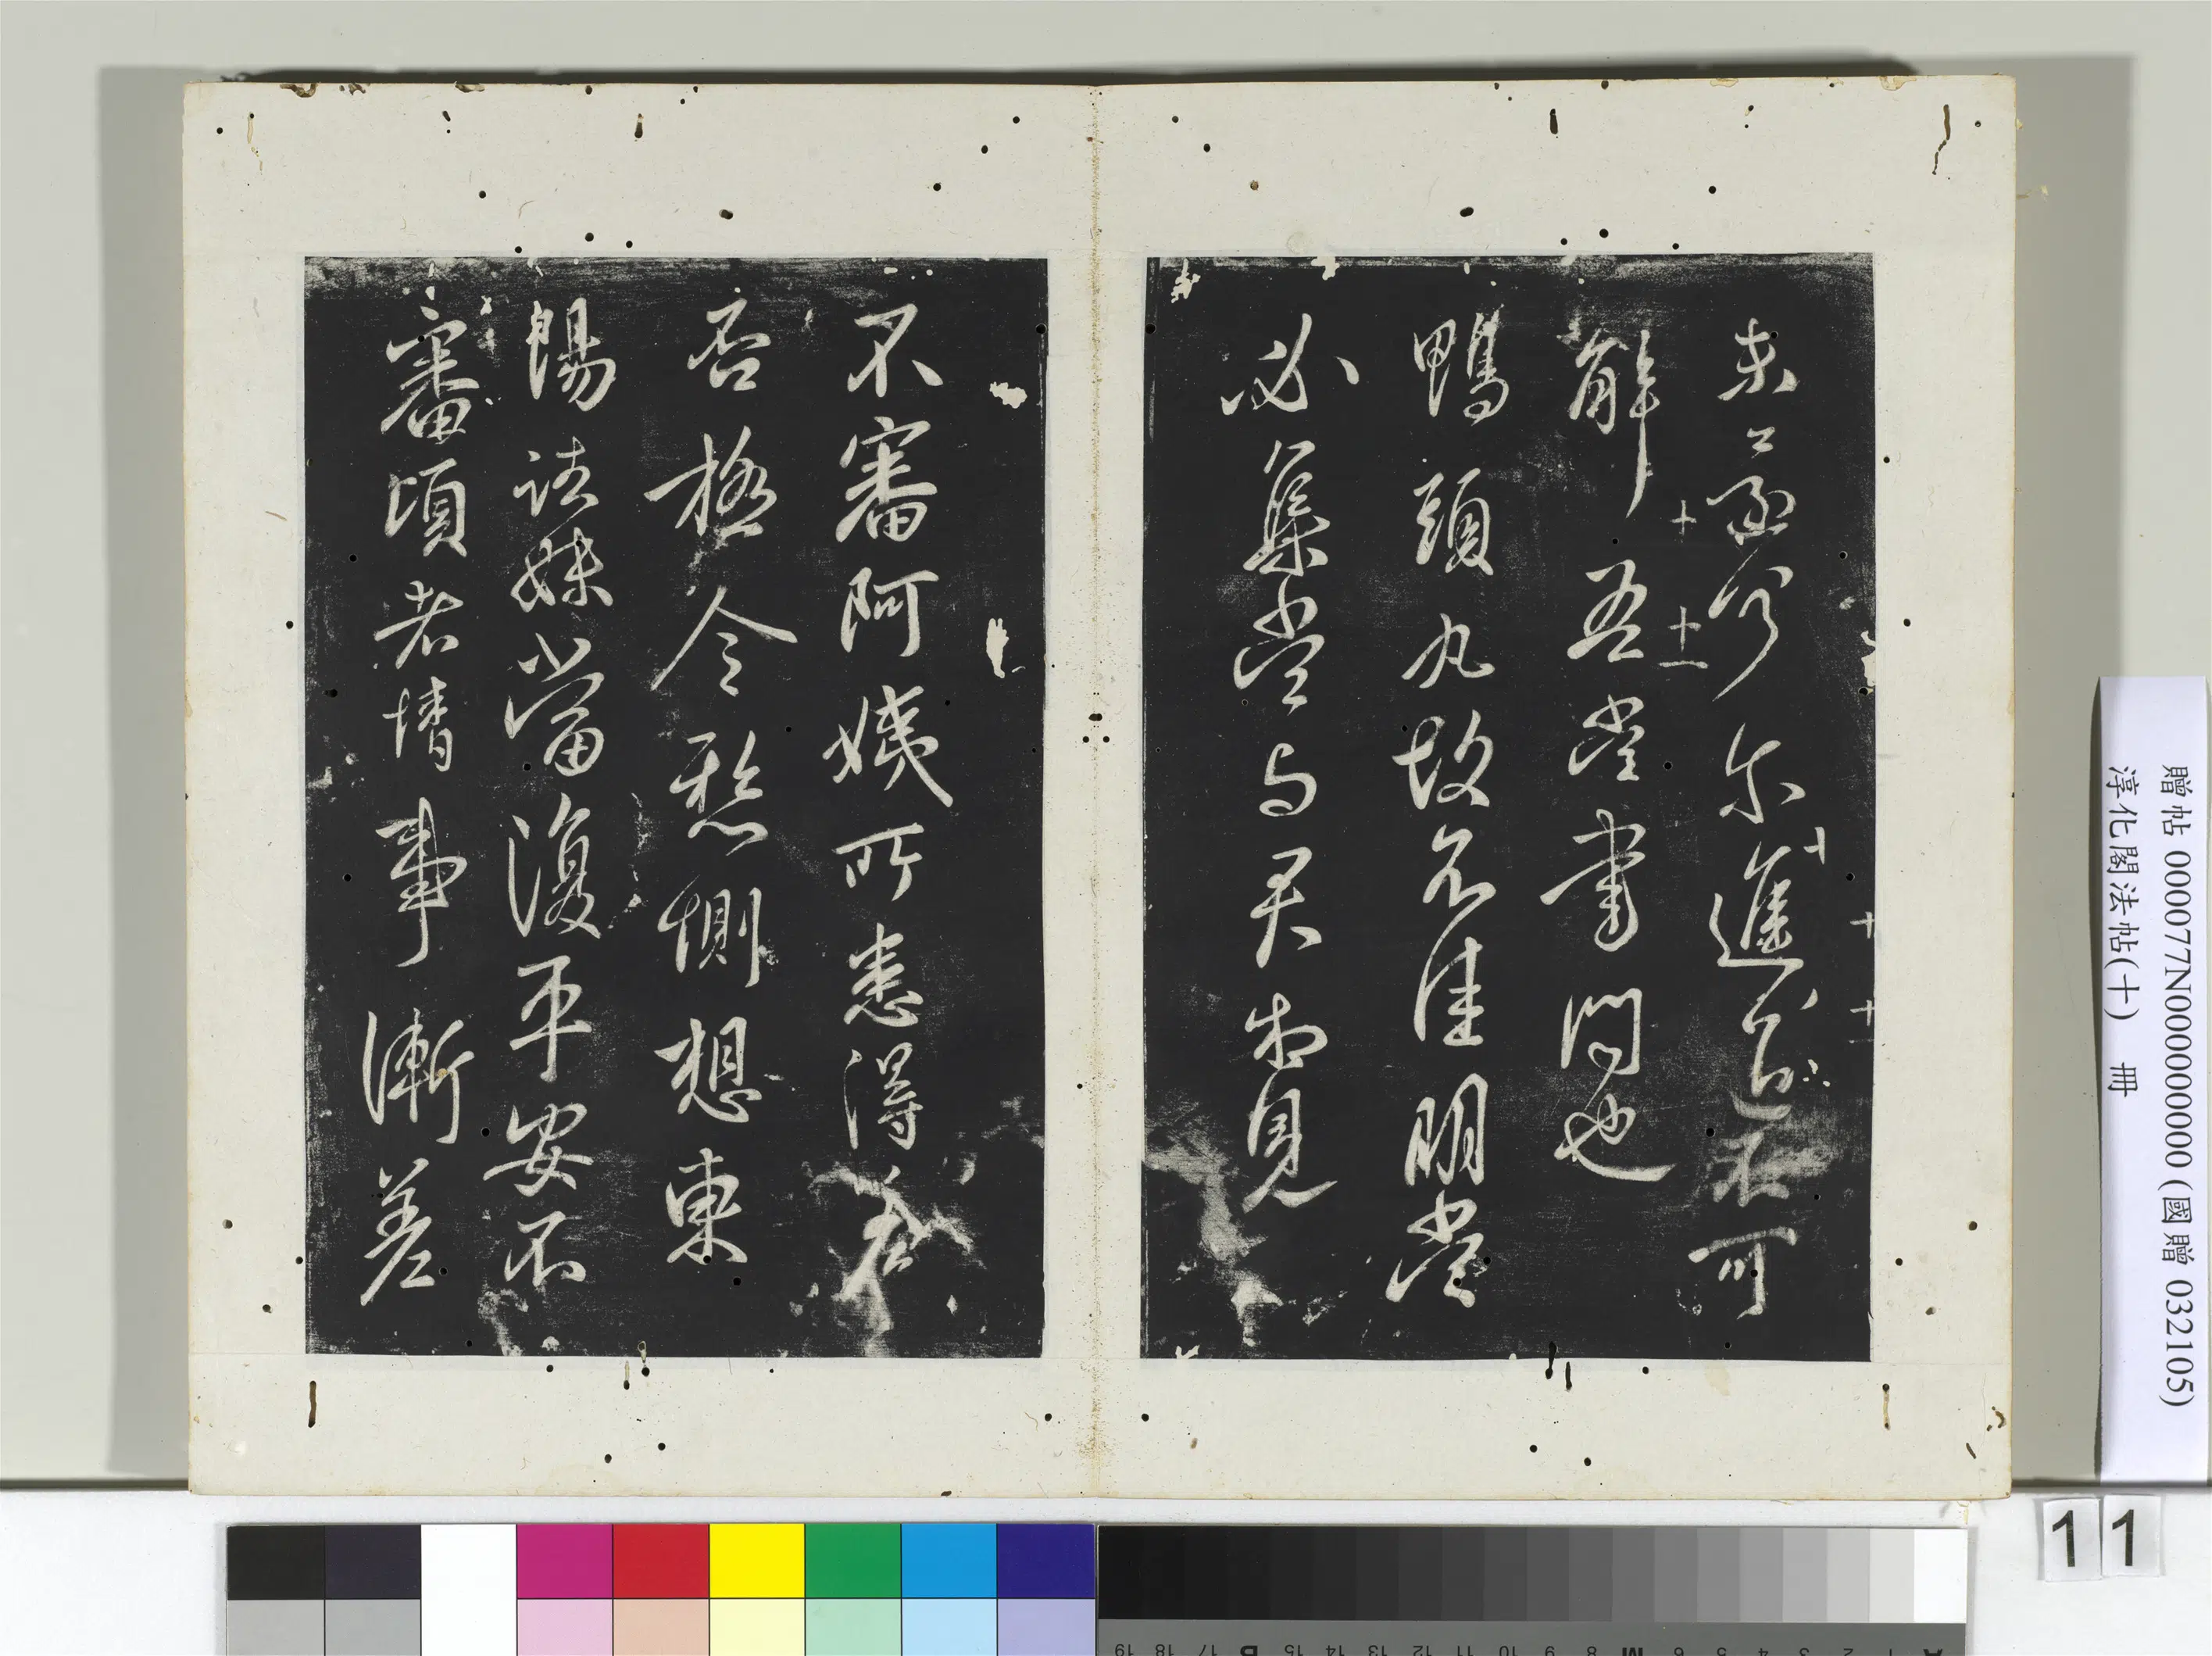 尔進退不可
解吾當書問也
鴨頭丸故不佳明當
必集當与君相見
不審阿姨所患得差
否極令惻想東
陽諸妹當復平安不
審頃者情事漸差
十
十一
贈帖 000077N000000000(國贈 032105)
淳化閣法帖(十) 冊
11